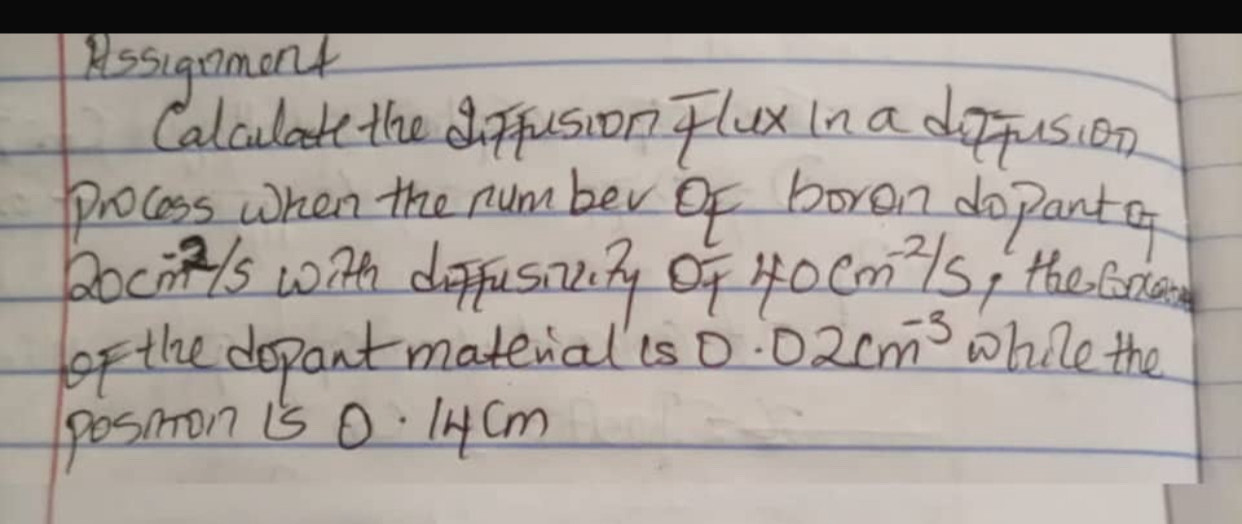 Assignment
Calculate the diffusion Flux in a diffusion
process when the number of boron dopant of
20cm⁻²/s with diffusivity of 40cm⁻²/s, the
of the dopant material is 0.02cm⁻³ while the
position is 0.14cm